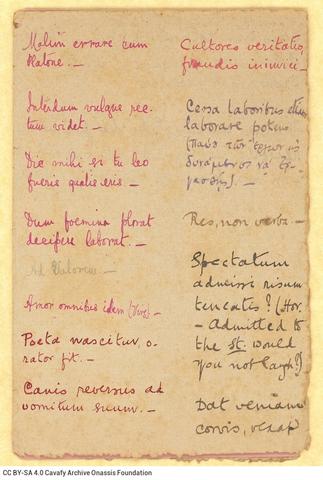 Malim errare cum
Platone. —
Interdum vulgus rec-
tum videt. —
Dic mihi si tu leo
fueris qualis eris —
Dum foemina plorat
decipere laborat. —
Ad Valorem —
Amor omnibus idem (Virg) —
Poeta nascitur, o-
rator fit. —
Canis reversus ad
vomitum suum. —
Cultores veritatis,
fraudis inimici —
Cessa laboribus
laborare potens
(Παῦε τῶν ἔργων
δυνάμενος νὰ
Res, non verba —
Spectatum
admissi risum
teneatis? (Hor.
— Admitted to
the st. would
you not laugh?)
Dat veniam
corvis, vexat
CC BY-SA 4.0 Cavafy Archive Onassis Foundation